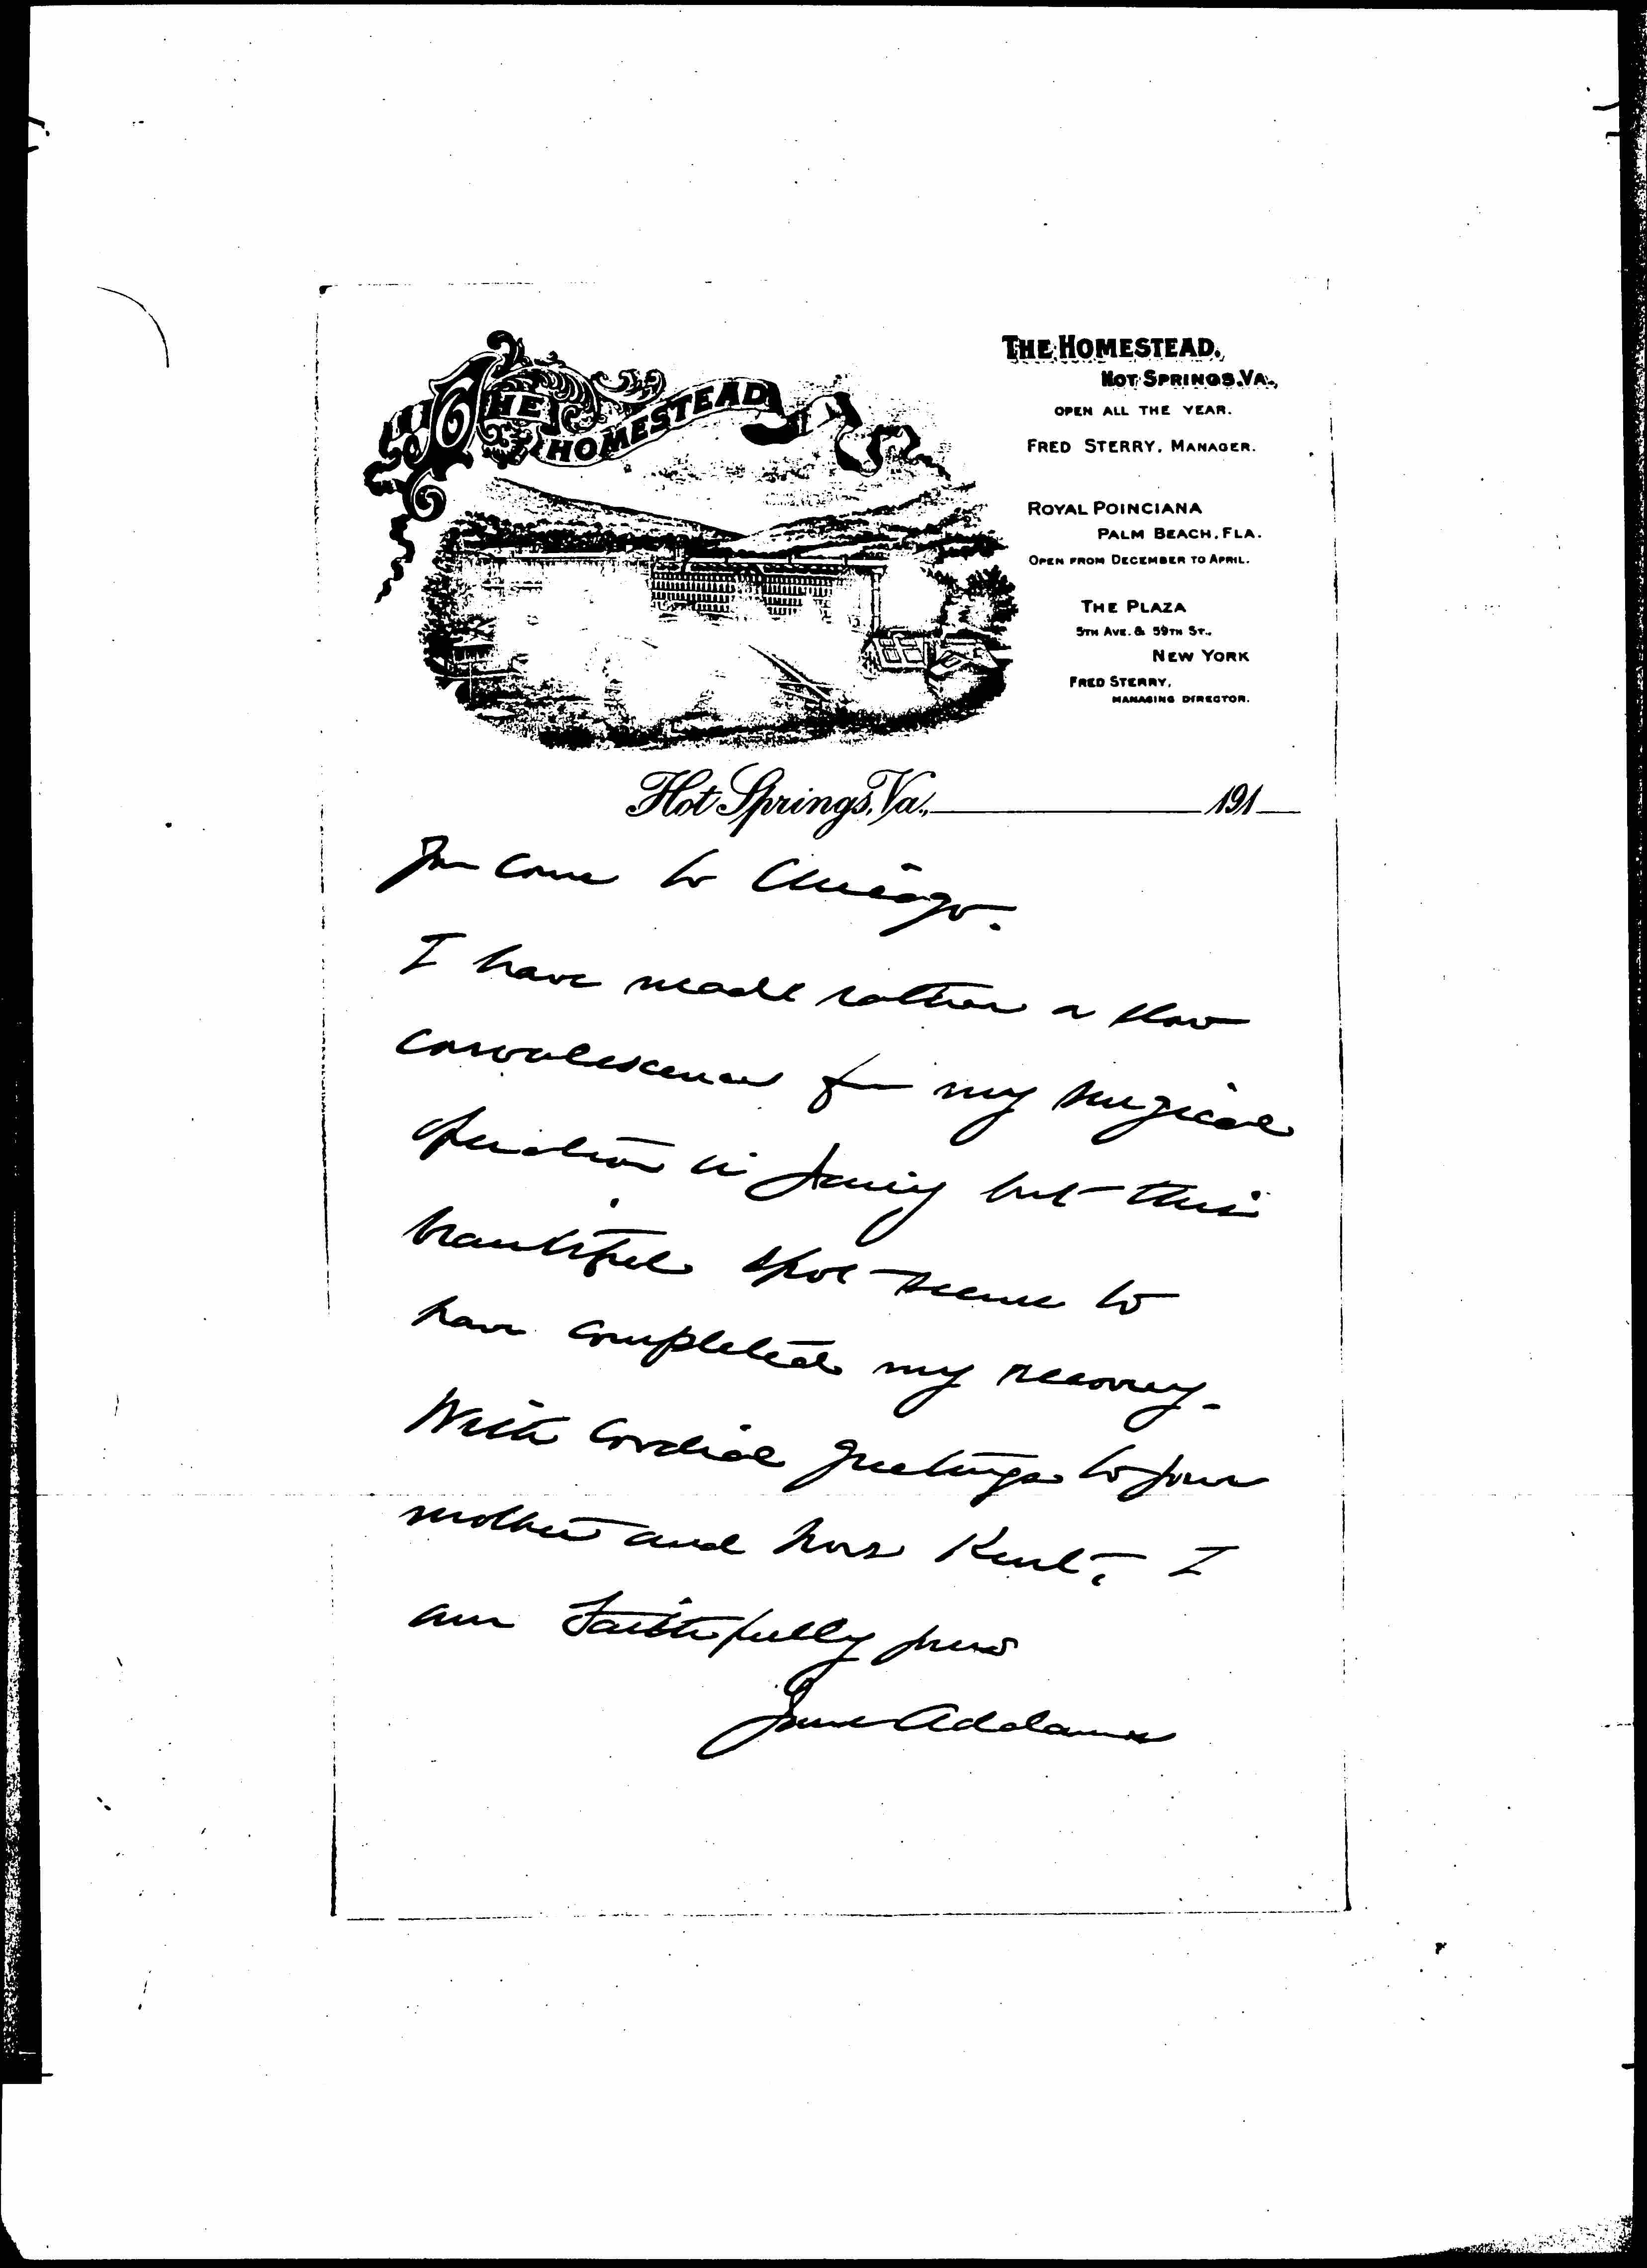 THE HOMESTEAD
THE HOMESTEAD.
HOT SPRINGS, VA.,
OPEN ALL THE YEAR.
FRED STERRY, MANAGER.
ROYAL POINCIANA
PALM BEACH, FLA.
OPEN FROM DECEMBER TO APRIL.
THE PLAZA
5TH AVE. & 59TH ST.,
NEW YORK
FRED STERRY,
MANAGING DIRECTOR.
Hot Springs, Va., 191
you come to Chicago.
I have made rather a slow
convalescence from my surgical
operation in but this
beautiful spot seems to
have completed my recovery.
With cordial greetings to your
mother and Mrs Kent, I
am faithfully yours
Jane Addams